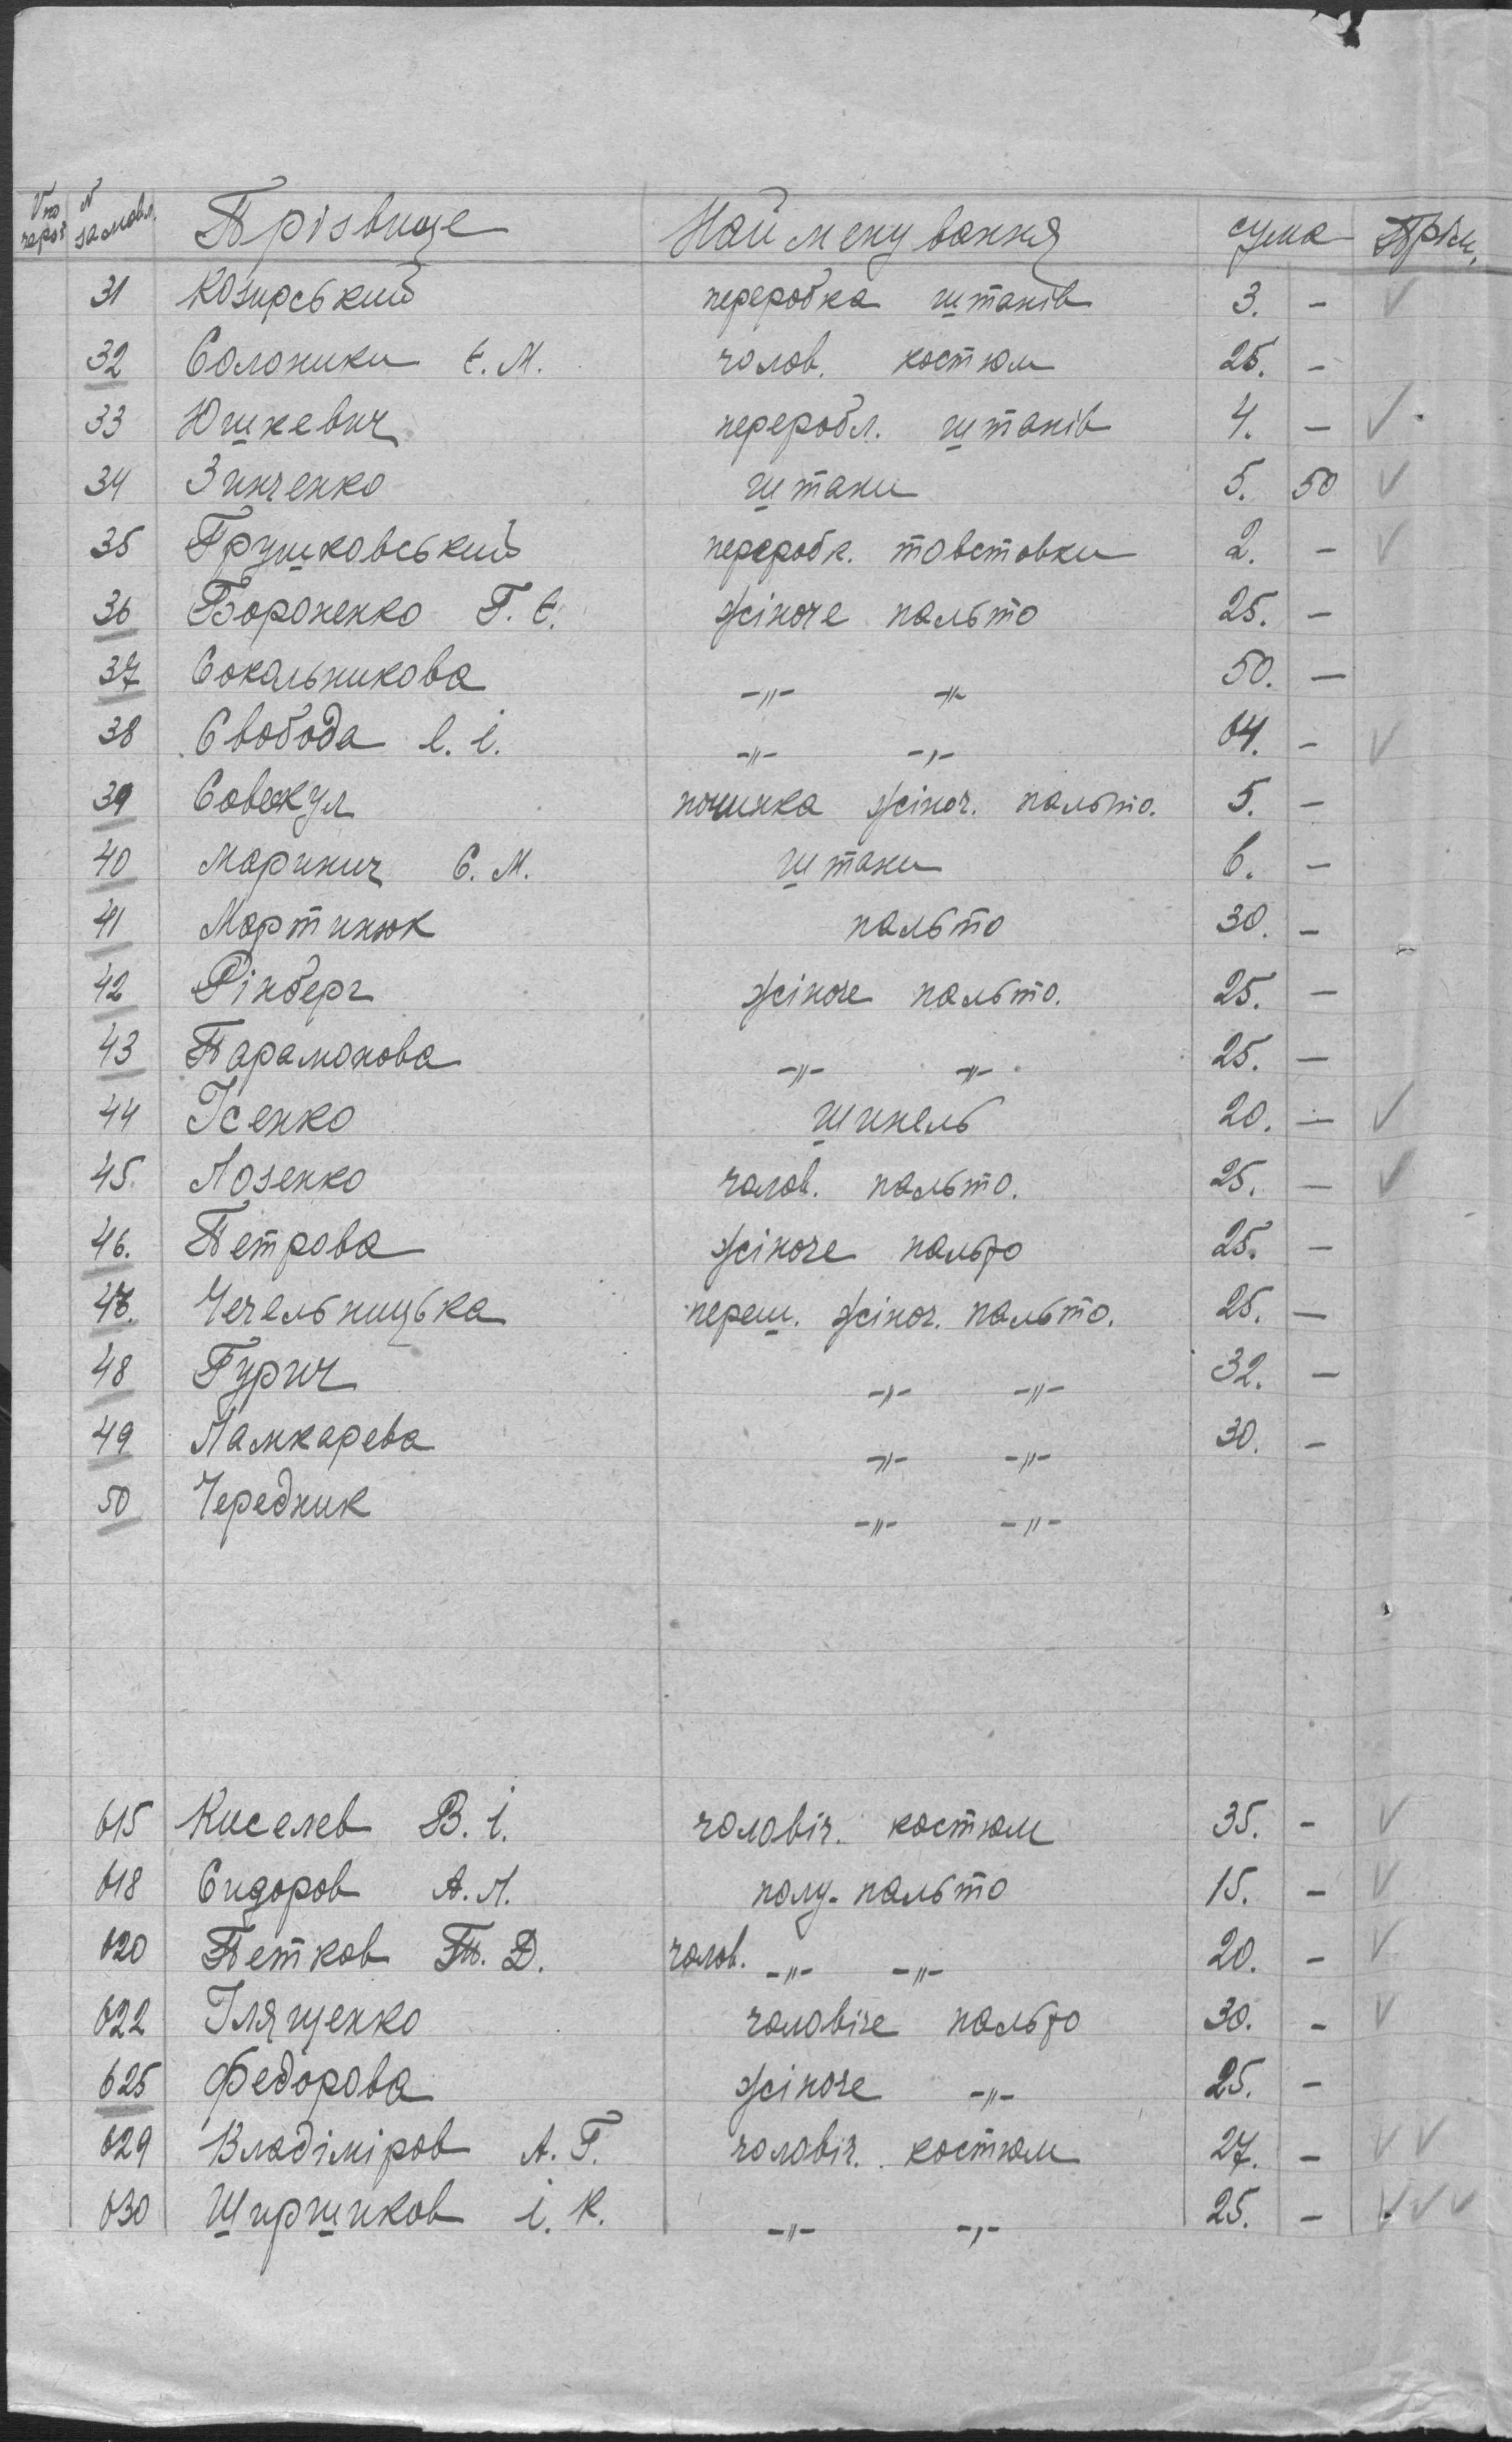 N по черзі N замовл. Прізвище Найменування сума Прім.
31 Козирський переробка штанів 3. - ✓
32 Солоники Є. М. чолов. костюм 25. -
33 Юшкевич перероб л. штанів 4. - ✓
34 Зинченко штани 5. 50 ✓
35 Грушковський переробк. товстовки 2. - ✓
36 Бороненко Г. Є. жіноче пальто 25. -
37 Сокальникова -"- -"- 50. -
38 Свобода Є. І. -"- -"- 64. - ✓
39 починка жіноч. пальто. 5. -
40 Маринич С. М. штани 6. -
41 Мартинюк пальто 30. -
42 Рінберг жіноче пальто. 25. -
43 Парамонова -"- -"- 25. -
44 Ісенко шинель 20. - ✓
45. Лозенко чолов. пальто. 25. - ✓
46. Петрова жіноче пальто 25. -
47. Чечельницька переш. жіноч. пальто. 25. -
48 Гурич -"- -"- 32. -
49 Ламкарева -"- -"- 30. -
50 Чередник -"- -"-
615 Киселев В. І. чоловіч. костюм 35. - ✓
618 Сидоров А. Л. полу-пальто 15. - ✓
620 Петков П. Д. чолов. -"- -"- 20. - ✓
622 Іллященко чоловіче пальто 30. - ✓
625 Федорова жіноче -"- 25. -
629 Владіміров А. Г. чоловіч. костюм 27. - ✓ ✓
630 Ширшиков І. К. -"- -"- 25. - ✓ ✓ ✓